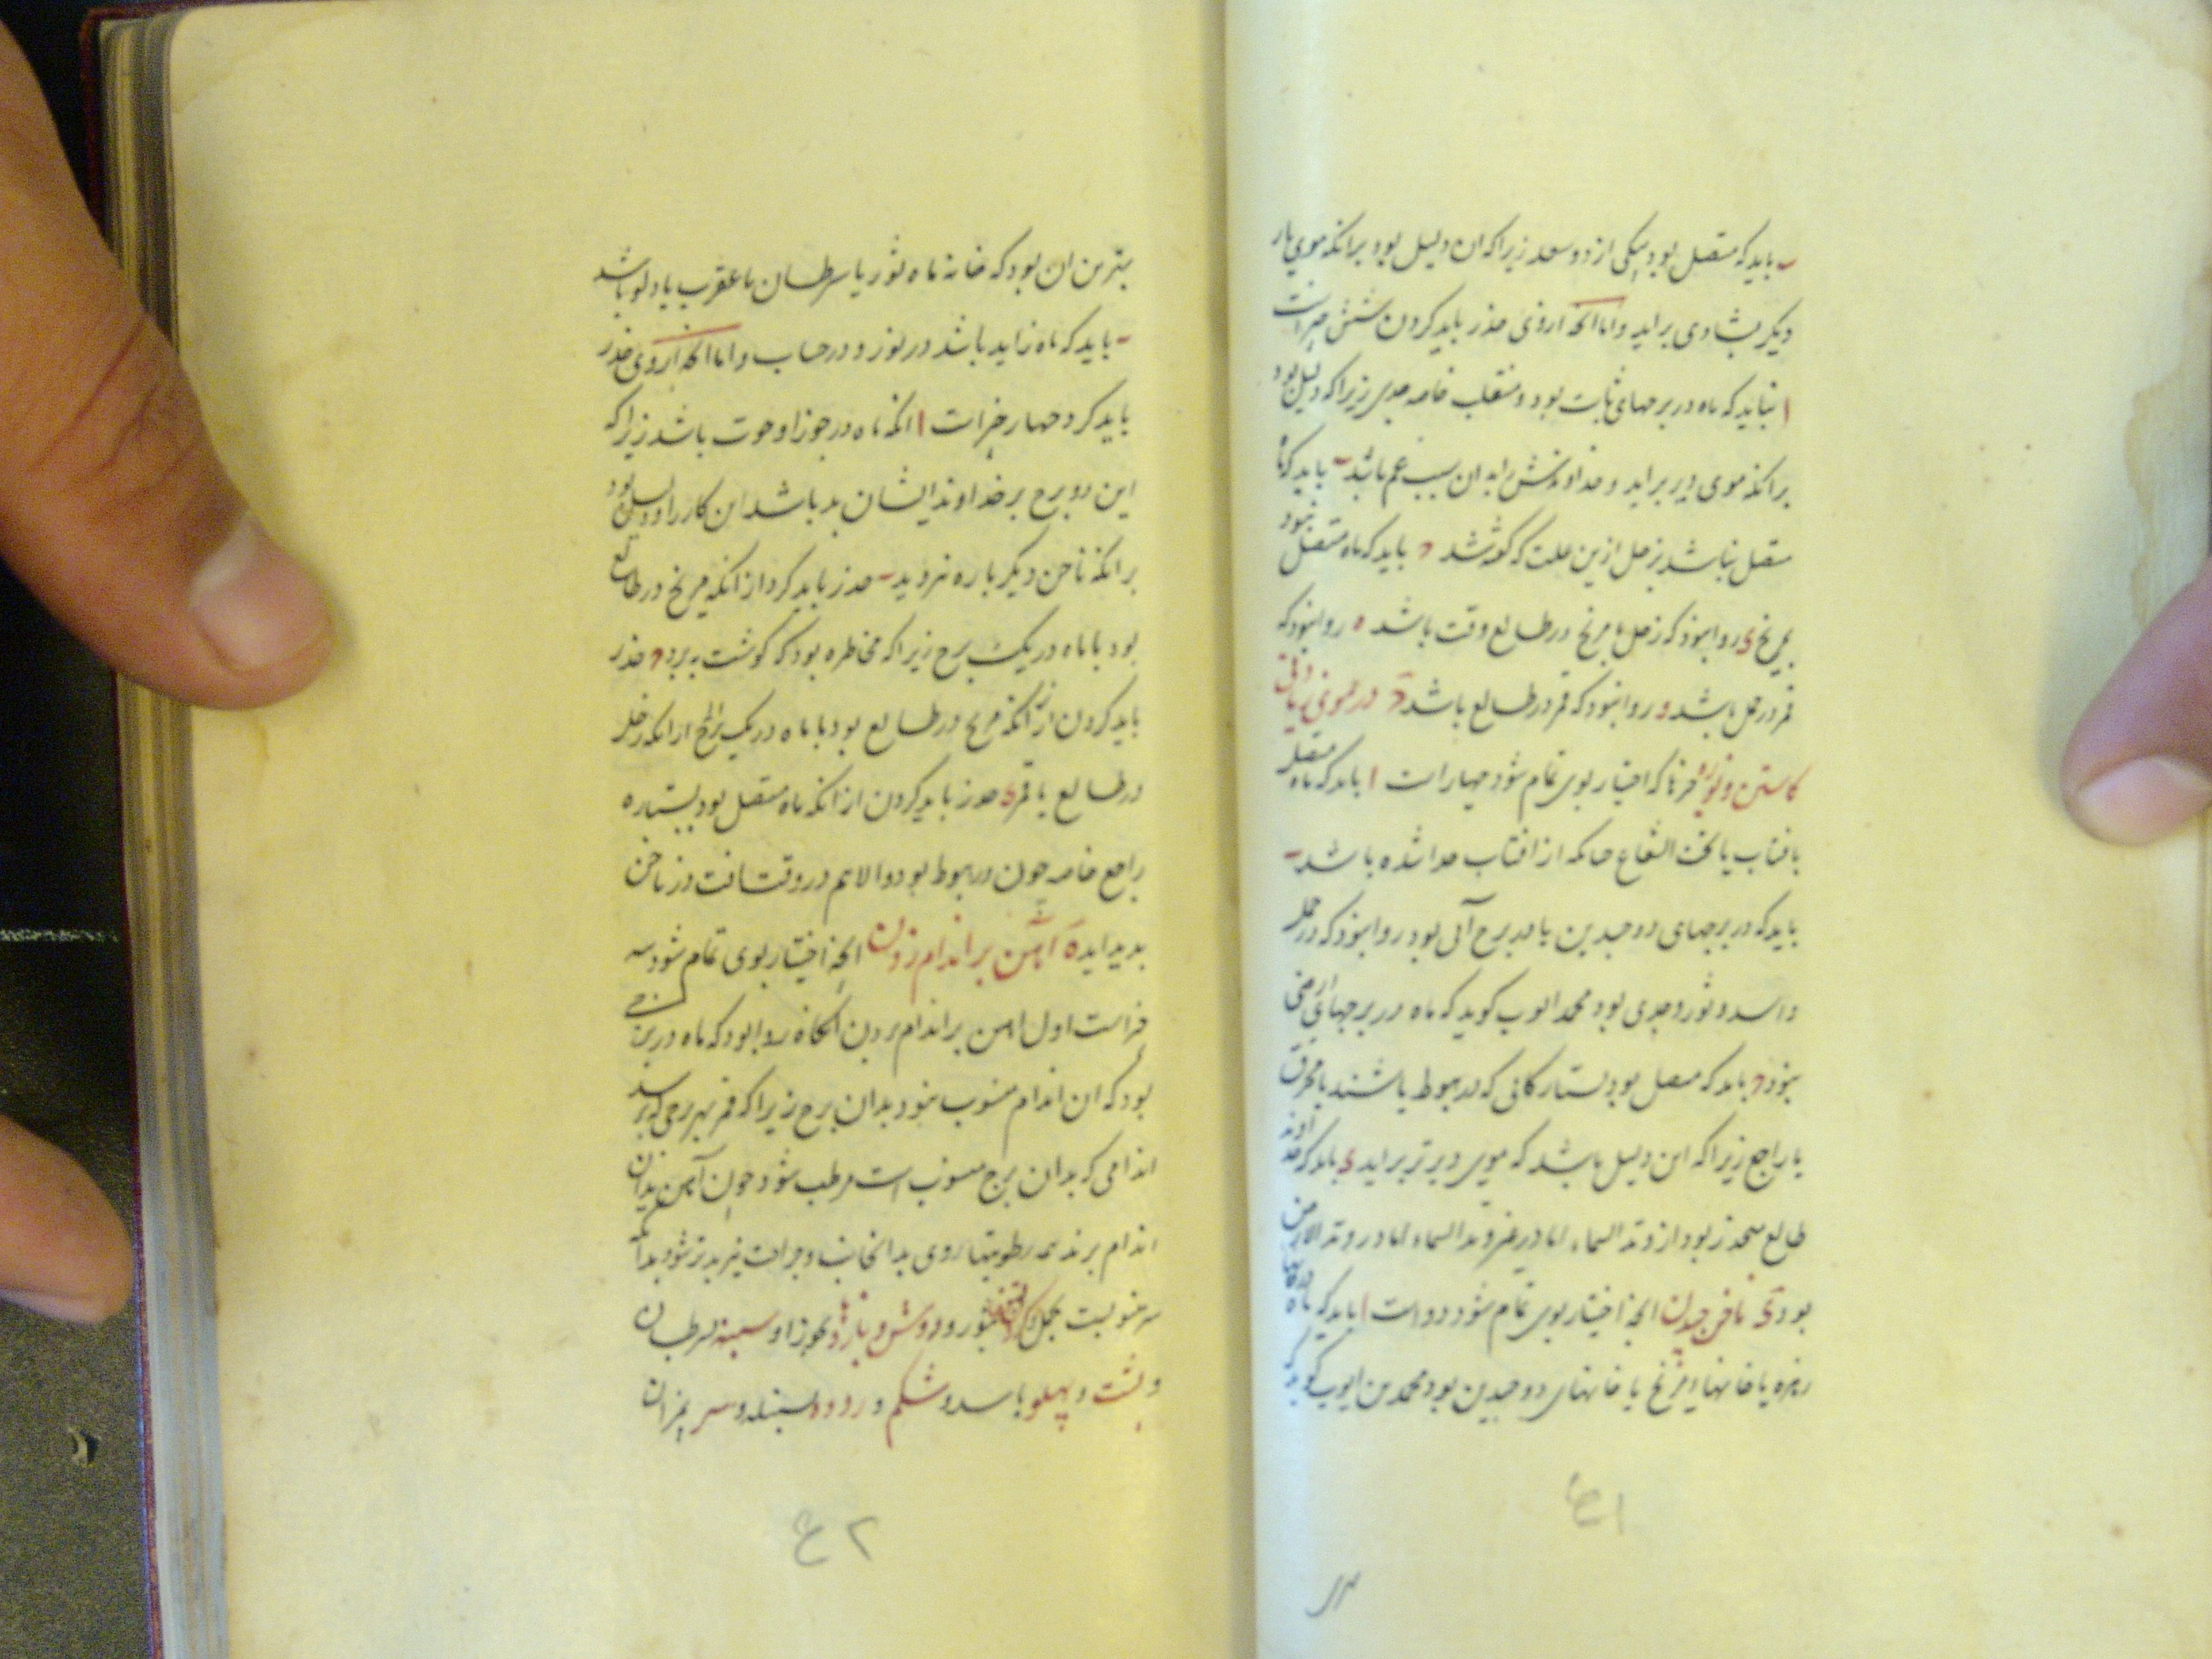 ب باید که متصل بود بیکی از دو سعد زیرا که ان دلیل بود برانکه موی بار
دیکر بشادی براید واما انچه ازوی حذر باید کردن شش چیزاست
ا نباید که ماه در برجهای ثابت بود و منقلب خاصه جدی زیرا که دلیل بود
برانکه موی دیر براید و خداوندش را به ان سبب غم باشد ب باید که تا
متصل نباشد بزحل ازین علت که کفته شد باید که ماه متصل نبود
بمریخ د روا نبود که زحل یا مریخ در طالع وقت باشد ه روا نبود که
قمر در حمل باشد و روا نبود که قمر در طالع باشد در موی
کاستن و نوره خرنا که اختیار بوی تمام شود چهار است ا باید که ماه متصل
بافتاب یا تحت الشعاع حالکه از افتاب جدا شده باشد ب
باید که در برجهای دو جسدین یا در برج آبی بود روا نبود که در حمل
و اسد و ثور و جدی بود محمد ایوب کوید که ماه در برجهای ارضی
نبود ج باید که متصل بود بستارکانی که در هبوط باشند یا محترق
یا راجع زیرا که این دلیل باشد که موی دیرتر براید د باید که خداوند
طالع منحدر بود از وتد السماء اما در غیر وتد السماء اما در وتد الارض
بود ناخن چیدن انچه اختیار بوی تمام شود دو است ا باید که ماه در خانهای
زهره یا خانهای مریخ یا خانهای دو جسدین بود محمد بن ایوب کوید که
۴۱
بهترین ان بود که خانه ماه ثور یا سرطان یا عقرب یا دلو باشد
ب باید که ماه زاید باشد در نور و در حساب و اما انچه ازوی حذر
باید کرد چهار چیزاست ا انکه ماه در جوزا و حوت باشد زیرا که
این دو برج بر خداوند ایشان بد باشد این کار را و دلیل بود
برانکه ناخن دیکر باره نروید ب حذر باید کرد از انکه مریخ در طالع
بود با ماه در یک برج زیرا که مخاطره بود که کوشت ببرد ج حذر
باید کردن از انکه مریخ در طالع بود با ماه در یک برج از انکه زحل
در طالع یا قمر د حذر باید کردن از انکه ماه متصل بود بستاره
راجع خاصه چون در هبوط بود و الا هم در وقت افت در ناخن
پدید اید ه آهن بر اندام زدن انچه اختیار بوی تمام شود سه
چیز است اول اهن بر اندام زدن انکاه روا بود که ماه در برجی
بود که ان اندام منسوب نبود بدان برج زیرا که قمر بهر برجی که برسد
اندامی که بدان برج منسوب است مرطب شود چون آهن بدان
اندام برند همه رطوبتها روی بدانجا نهد و جراحت نیز بدتر شود بدانکه
سر منسوبست بحمل و کردن بثور و دوش و بازو بجوزا و سینه بسرطان
و پشت و پهلو باسد و شکم و روده بسنبله و سرین بمیزان
۴۲